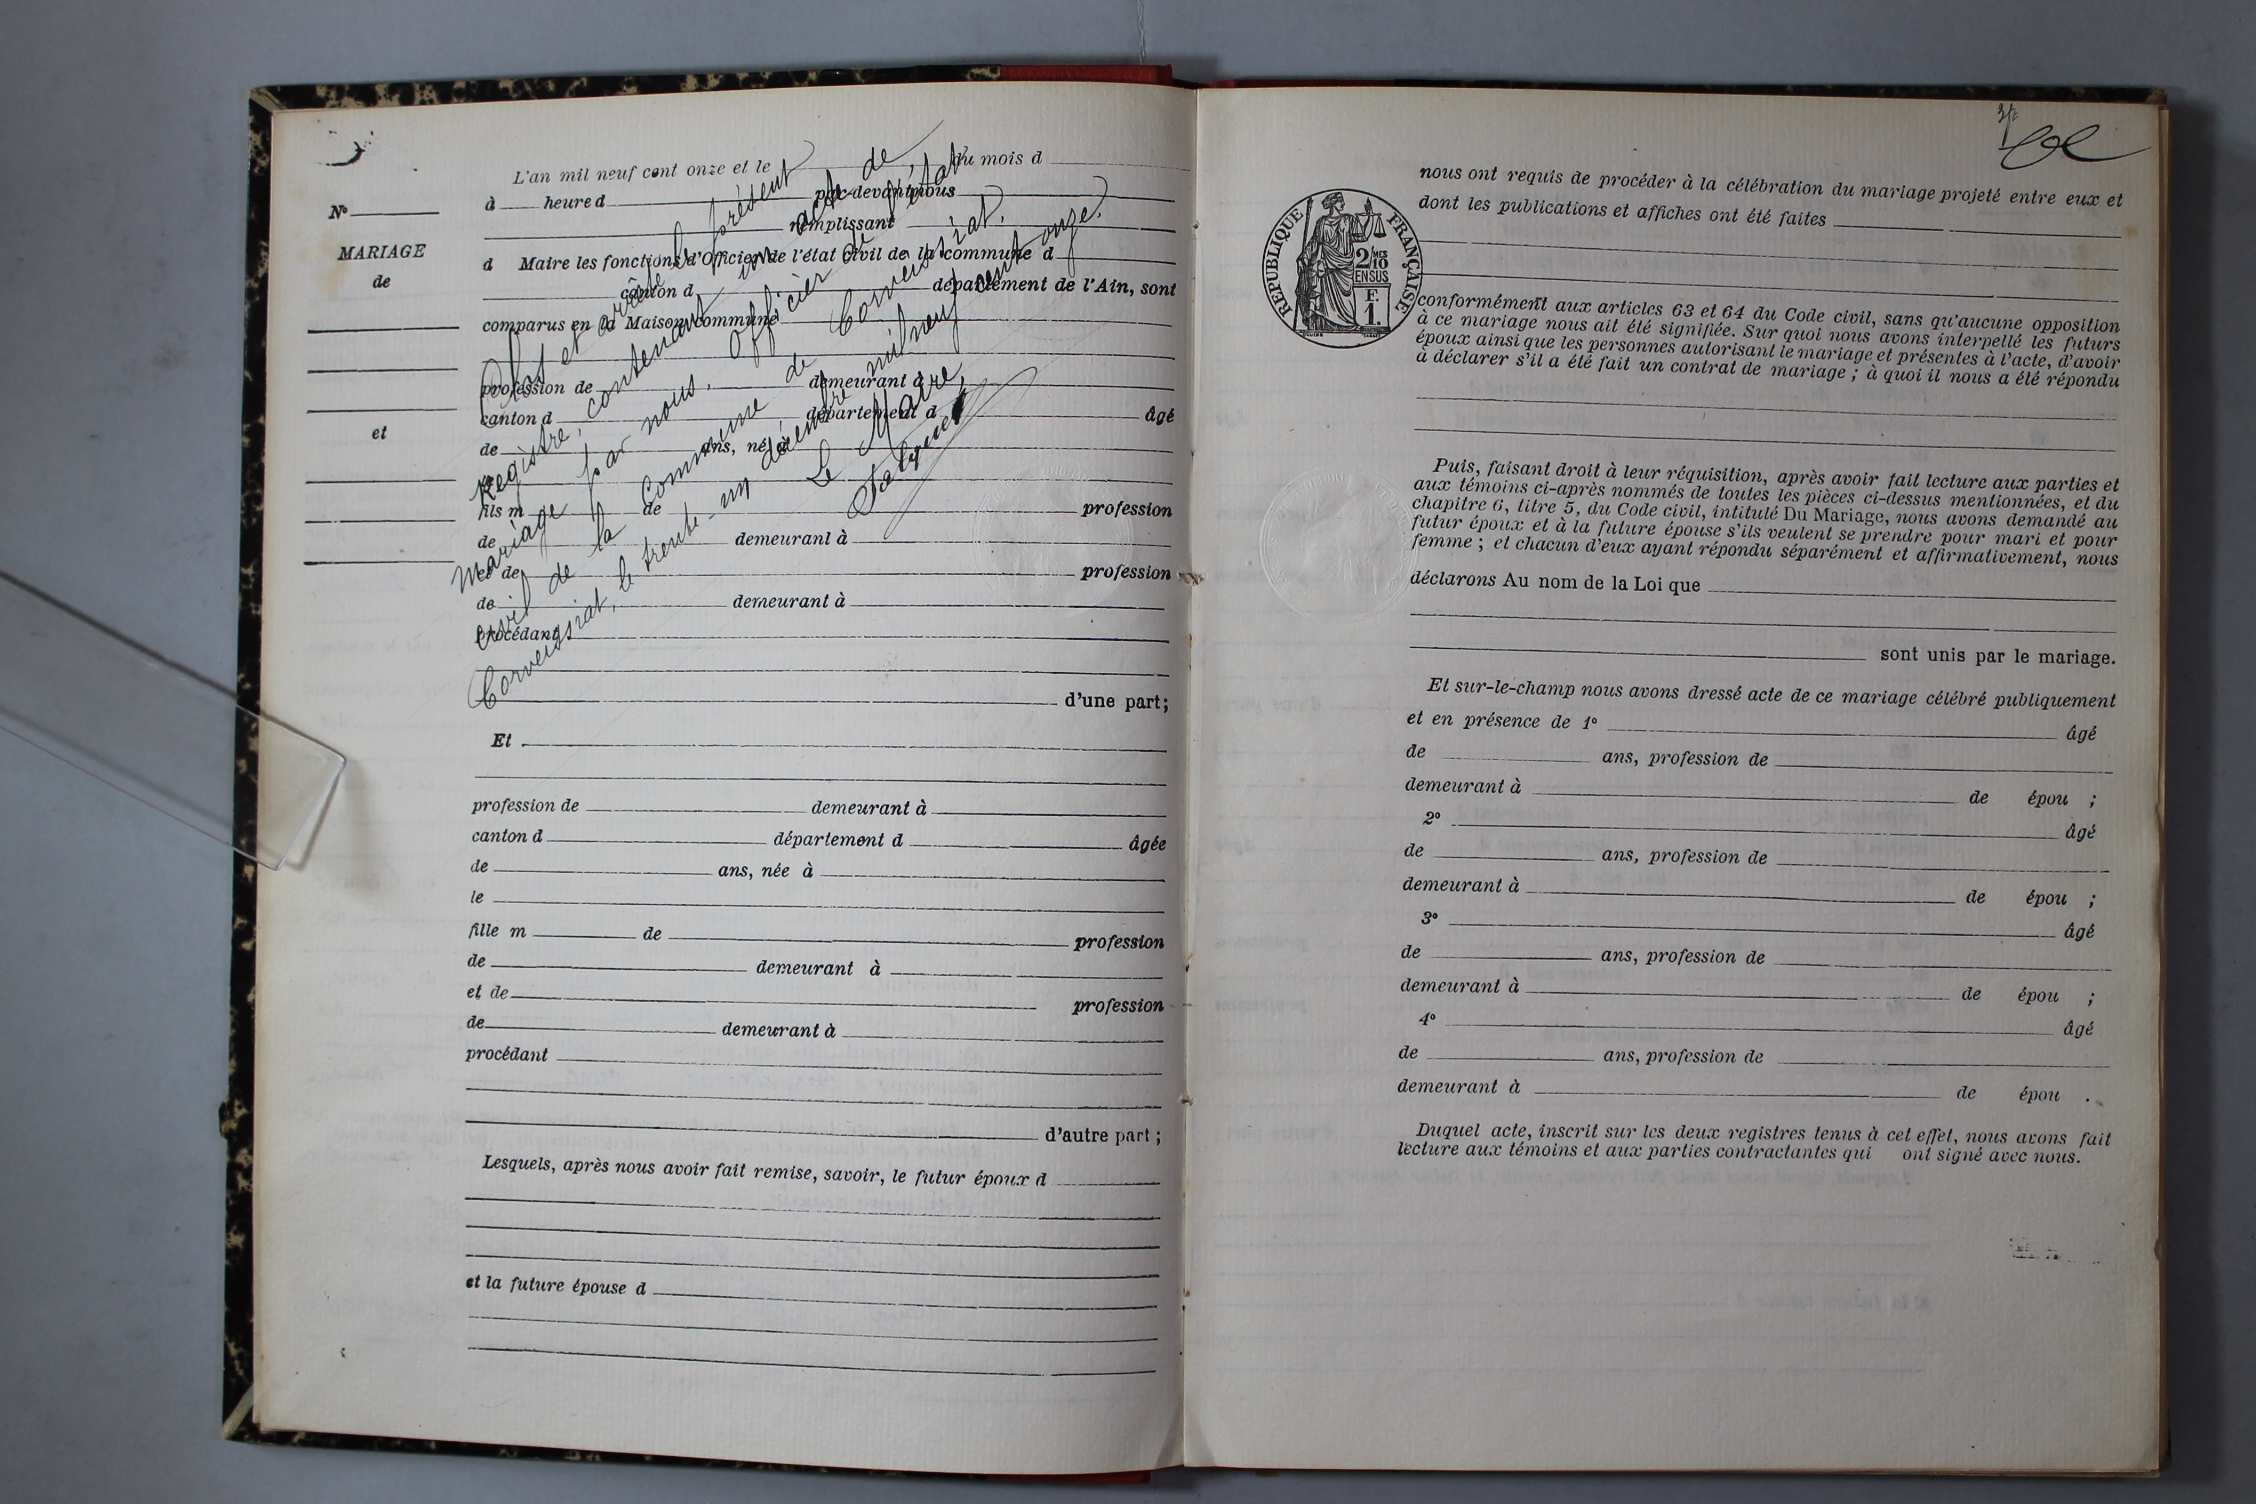 L'an mil neuf cent onze et le du mois d
à heure d par-devant nous
remplissant
d Maire les fonctions d'Officier de l'état Civil de la commune d
canton d département de l'Ain, sont
comparus en la Maison commune
profession de demeurant à
canton d département d âgé
de ans, né à
le
fils m de profession
de demeurant à profession
et de profession
de demeurant à
Procédant
d'une part;
Clos et arrêté le présent
Registre, contenant un acte de
Mariage par nous, Officier de l'état
Civil de la Commune de Corveissiat.
Corveissiat, le trente-un décembre mil neuf cent onze.
Le Maire,
N°
MARIAGE
de
et
Et
profession de demeurant à
canton d département d âgée
de ans, née à
le
fille m de profession
de demeurant à
et de profession
de demeurant à
procédant
d'autre part ;
Lesquels, après nous avoir fait remise, savoir, le futur époux d
et la future épouse d
nous ont requis de procéder à la célébration du mariage projeté entre eux et
dont les publications et affiches ont été faites
RÉPUBLIQUE FRANÇAISE
2/10
EN SUS
F.
1.
conformément aux articles 63 et 64 du Code civil, sans qu'aucune opposition
à ce mariage nous ait été signifiée. Sur quoi nous avons interpellé les futurs
époux ainsi que les personnes autorisant le mariage et présentes à l'acte, d'avoir
à déclarer s'il a été fait un contrat de mariage ; à quoi il nous a été répondu
Puis, faisant droit à leur réquisition, après avoir fait lecture aux parties et
aux témoins ci-après nommés de toutes les pièces ci-dessus mentionnées, et du
chapitre 6, titre 5, du Code civil, intitulé Du Mariage, nous avons demandé au
futur époux et à la future épouse s'ils veulent se prendre pour mari et pour
femme ; et chacun d'eux ayant répondu séparément et affirmativement, nous
déclarons Au nom de la Loi que
sont unis par le mariage.
Et sur-le-champ nous avons dressé acte de ce mariage célébré publiquement
et en présence de 1° âgé
de ans, profession de
demeurant à de épou ;
2° âgé
de ans, profession de
demeurant à de épou ;
3° âgé
de ans, profession de
demeurant à de épou ;
4° âgé
de ans, profession de
demeurant à de épou .
Duquel acte, inscrit sur les deux registres tenus à cet effet, nous avons fait
lecture aux témoins et aux parties contractantes qui ont signé avec nous.